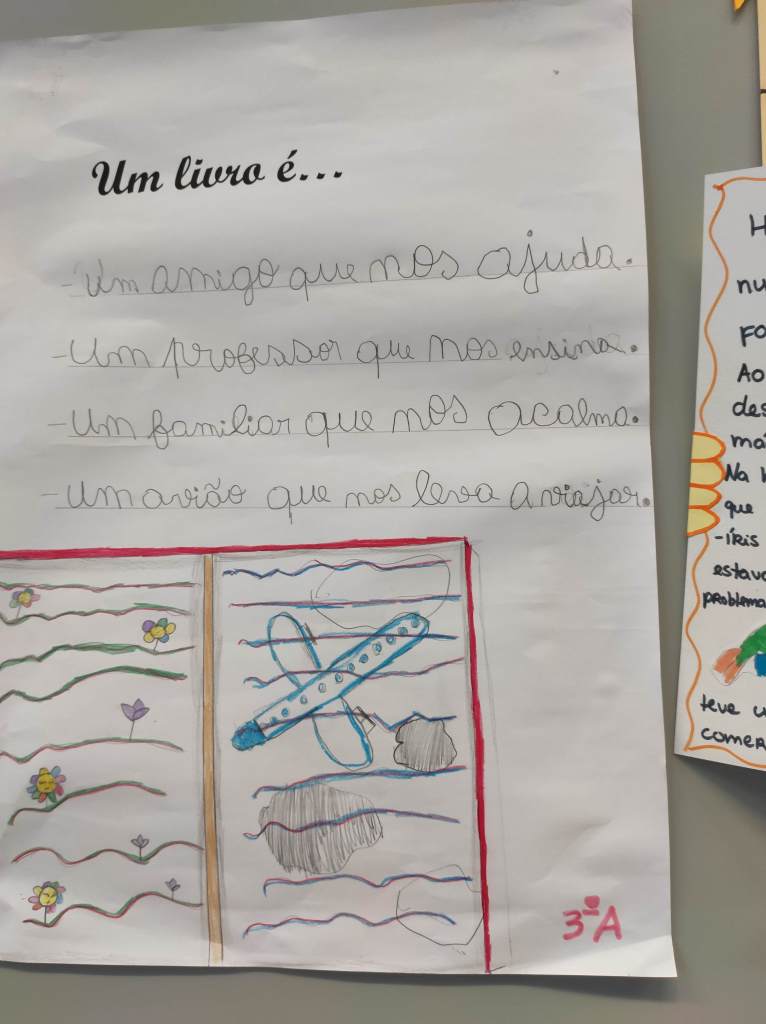 Um livro é...
- Um amigo que nos ajuda.
- Um professor que nos ensina.
- Um familiar que nos acalma.
- Um avião que nos leva a viajar.
3ºA
H
nu
Fo
Ao
des
ma
Na h
que
-íris
estava
problema
teve u
comer